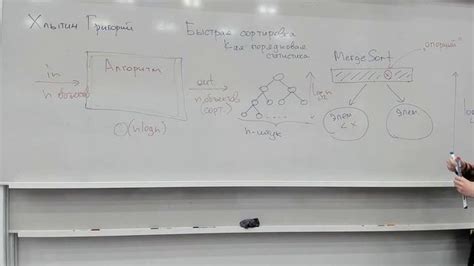 Хлытин Григорий
Быстрая сортировка
Как порядковая
статистика
"опорный"
MergeSort
Алгоритм
in
n объектов
out
n объектов
(сорт.)
O(n log n)
n-штук
Элем
< x
Элем.
log